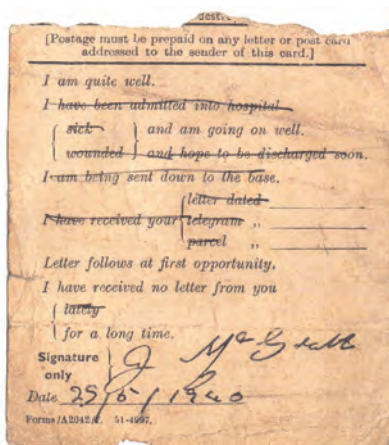 destroy
[Postage must be prepaid on any letter or post card
addressed to the sender of this card.]
I am quite well.
I have been admitted into hospital
sick
and am going on well.
wounded
and hope to be discharged soon.
I am being sent down to the base.
letter dated
I have received your
telegram ,,
parcel ,,
Letter follows at first opportunity.
I have received no letter from you
lately
for a long time.
Signature
only
J McGrath
Date 25/5/1940
Forms/A2042/2. 51-4997.